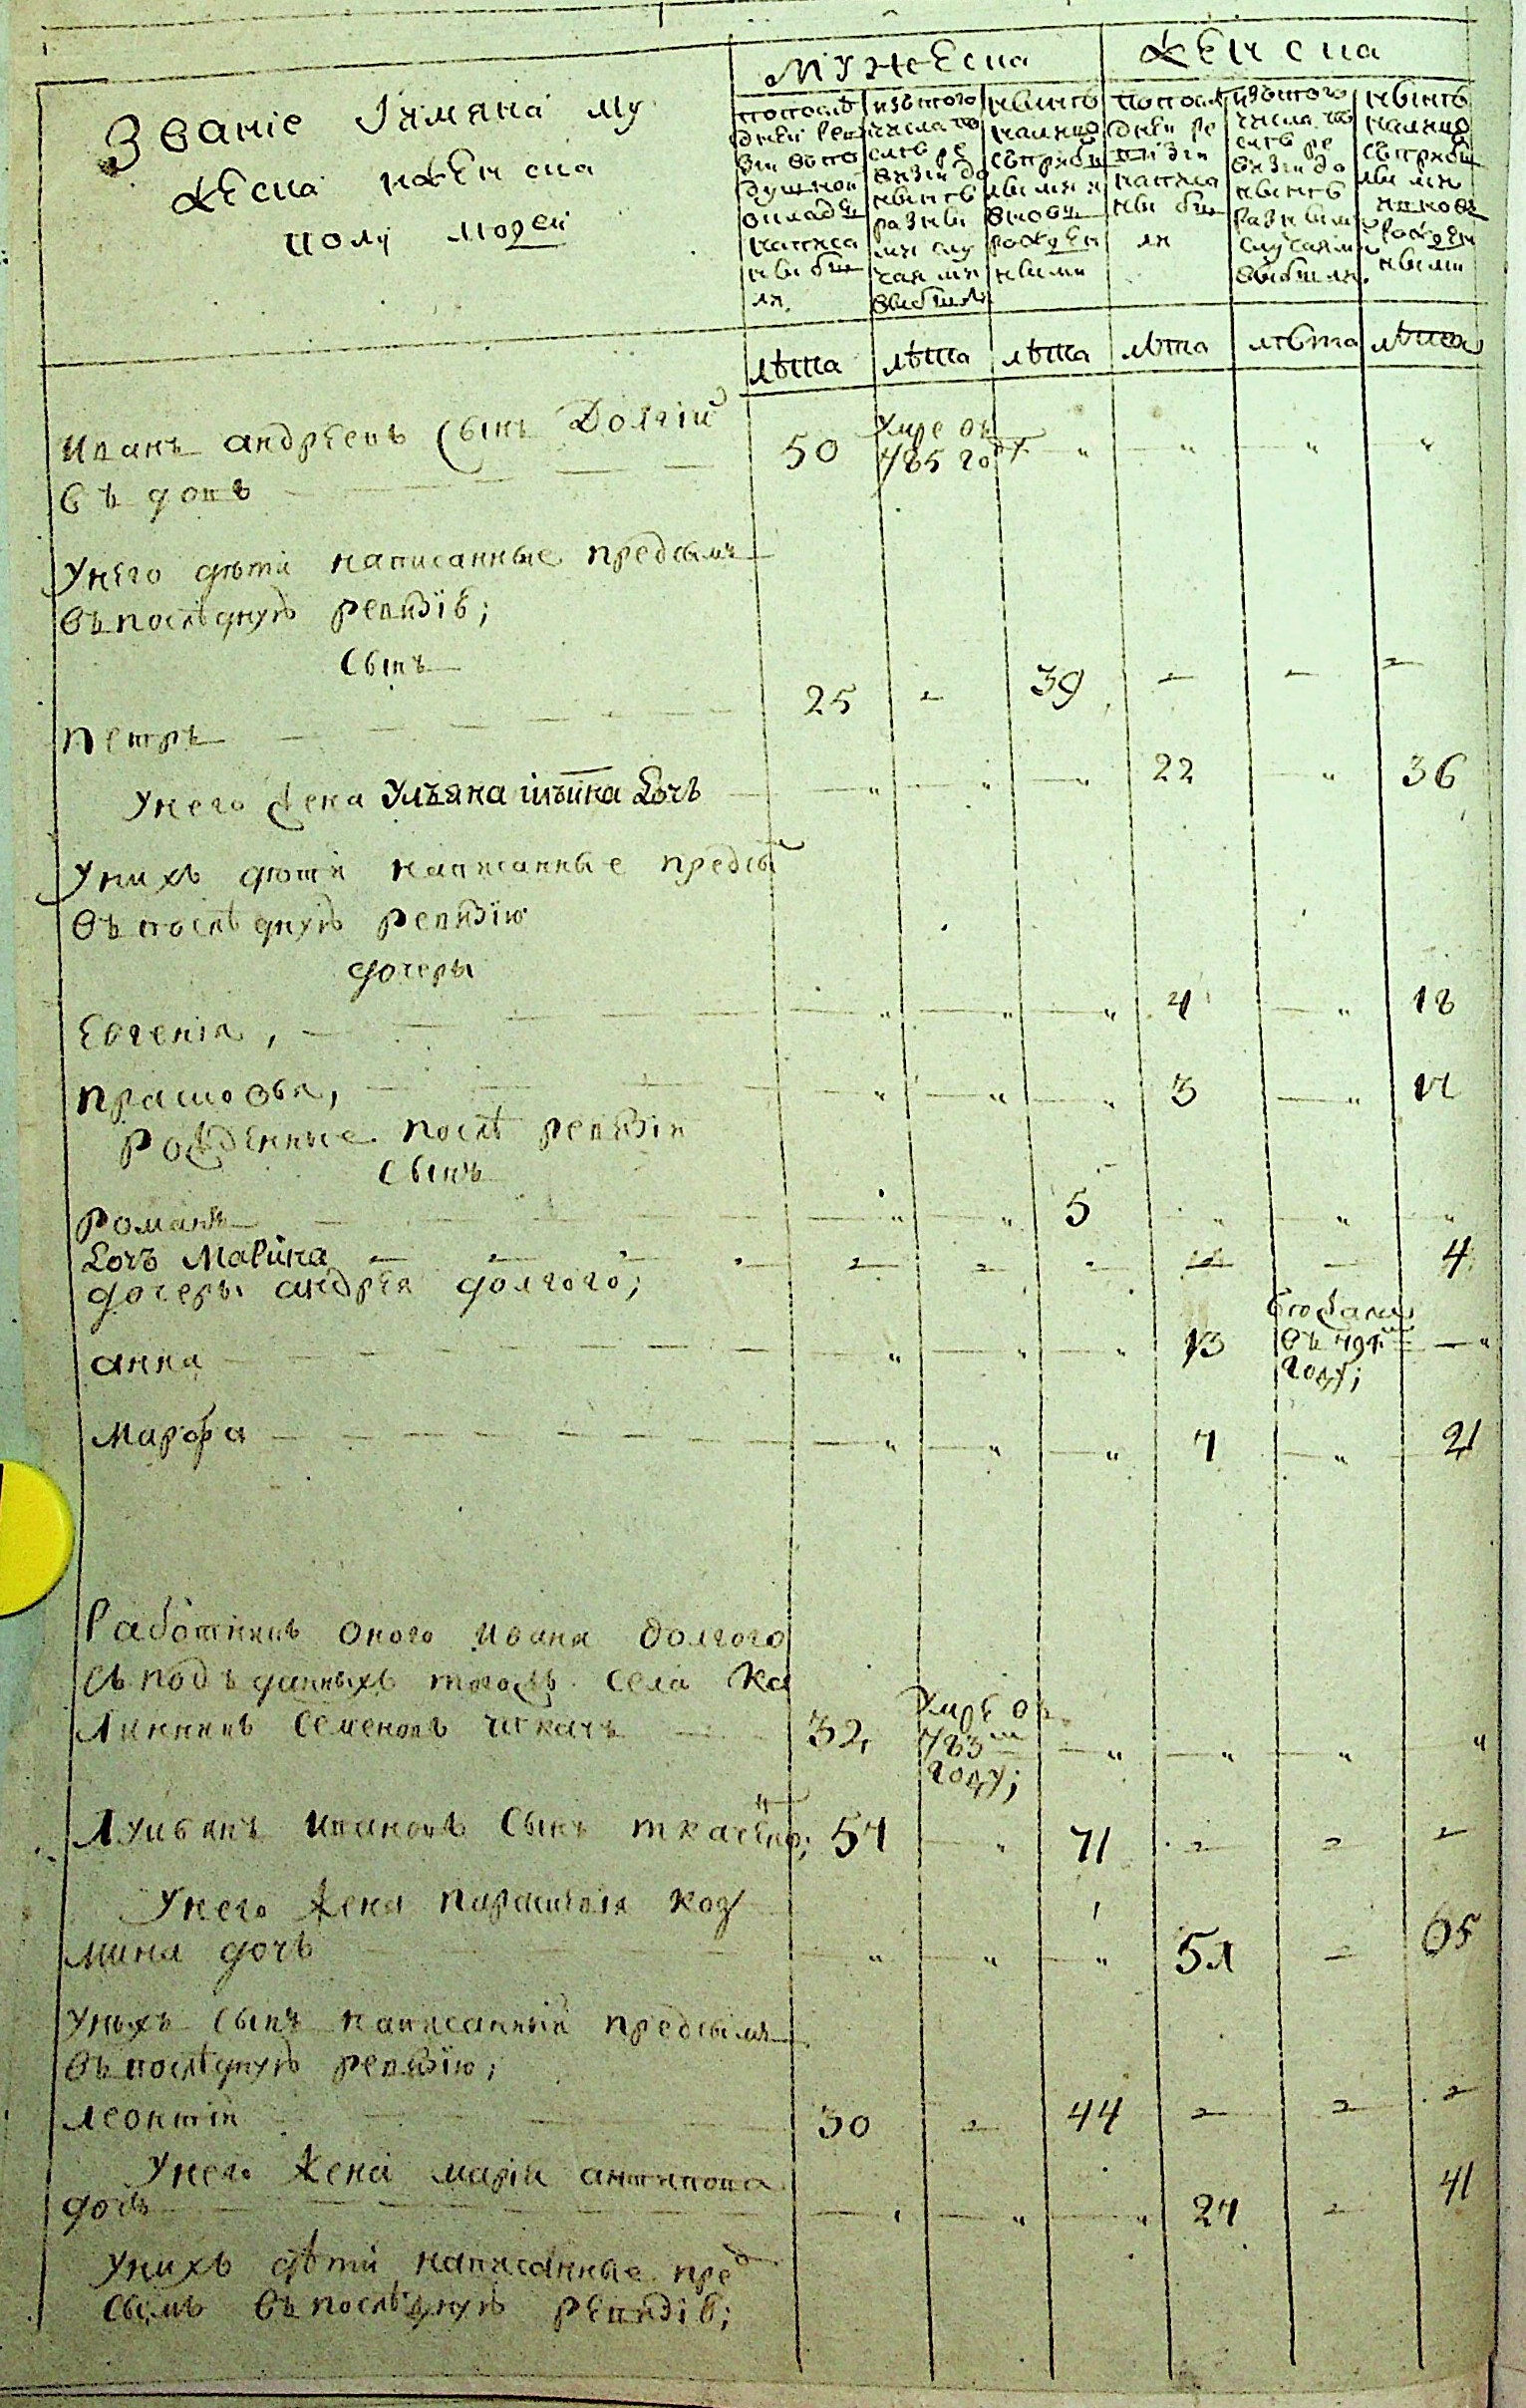 мужеска женска
Званіе Іимяна му
жеска иженска
полу людей
попослѣ дней реви зіи въпо душной окладъ написа ны бы ли
изътого числа по слѣ ре визіи до нынѣ разны ми слу чаями выбыло
нынѣ налицо съприбы лыми и вновь рожден ными
попослѣ дней ре визіи написа ны бы ли
изътого числа по слѣ ре визіи до нынѣ разными случаями выбыли.
нынѣ налицо съприбы лыми ивновь рожден ными
лѣта лѣта лѣта лѣта лѣта лѣта
Иванъ андрѣевъ Сынъ Долгій 50 Умре въ 785 году „ „ „ „
въ домѣ
Унего дѣти написанные предсымъ
въпослѣдную ревизіѣ;
Сынъ
петръ 25 - 39 - - -
Унего жена Ульяна ильина дочь „ „ „ 22 „ 36
Унихъ дѣти написанные предсы
въпослѣдную ревизію
дочеры
Евгенія, „ „ „ 4 „ 18
прасковья, „ „ „ 3 „ 17
рожденные послѣ ревизіи
Сынъ
романъ „ „ 5 „ „ „
дочь Марина - - - - - 4
дочеры андрея долгого;
анна „ „ „ 13 въ 791м году; „
Марфа „ „ „ 7 „ 21
Работникъ оного Ивана долгого
съподъданныхъ тогожъ села Ка
линникъ Семеновъ ткачъ 32, Умре въ 783м году; „ „ „ „
Лукьянъ ивановъ Сынъ ткаченко; 57 „ 71 - - -
Унего жена парасковія коз
мина дочь „ „ „ 51 - 65
Унихъ Сынъ написанный предсымъ
въпослѣдную ревизію;
леонтій 30 - 44 - - -
Унего жена марія антипова
дочь „ „ „ 27 - 41
Унихъ дѣти написанные пред
сымъ въпослѣдную ревизіѣ;